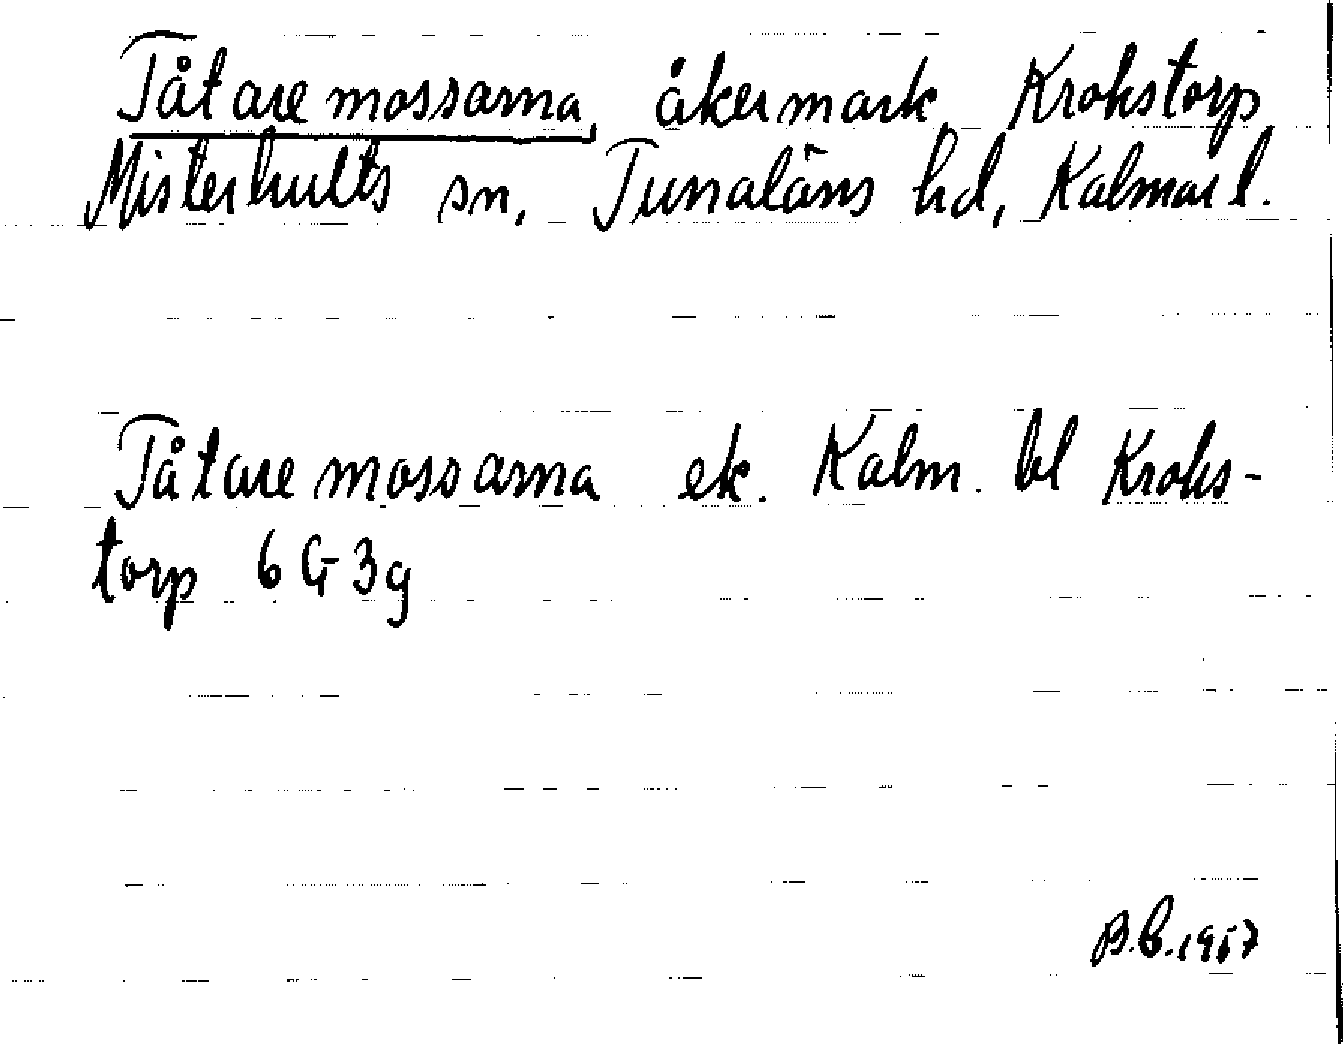 Tåtaremossarna, åkermark, Krokstorp
Misterhults sn, Tunaläns hd, Kalmar l.
Tåtaremossarna ek. Kalm. bl Kroks-
torp 6 G 3g
B.B. 1957